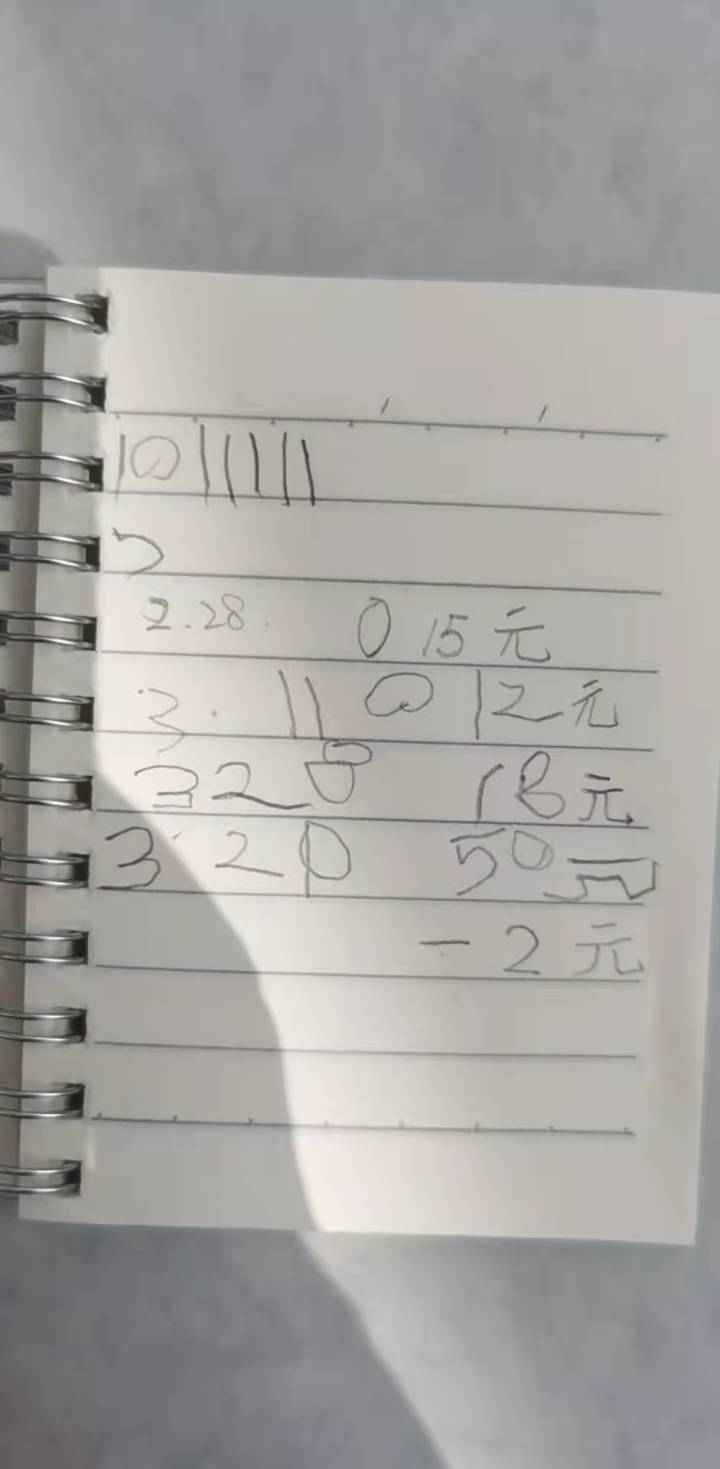 10 111111
2.28. 0 15元
3. 11 0 12元
3 2 8 18元
3 2 0 50元
-2元